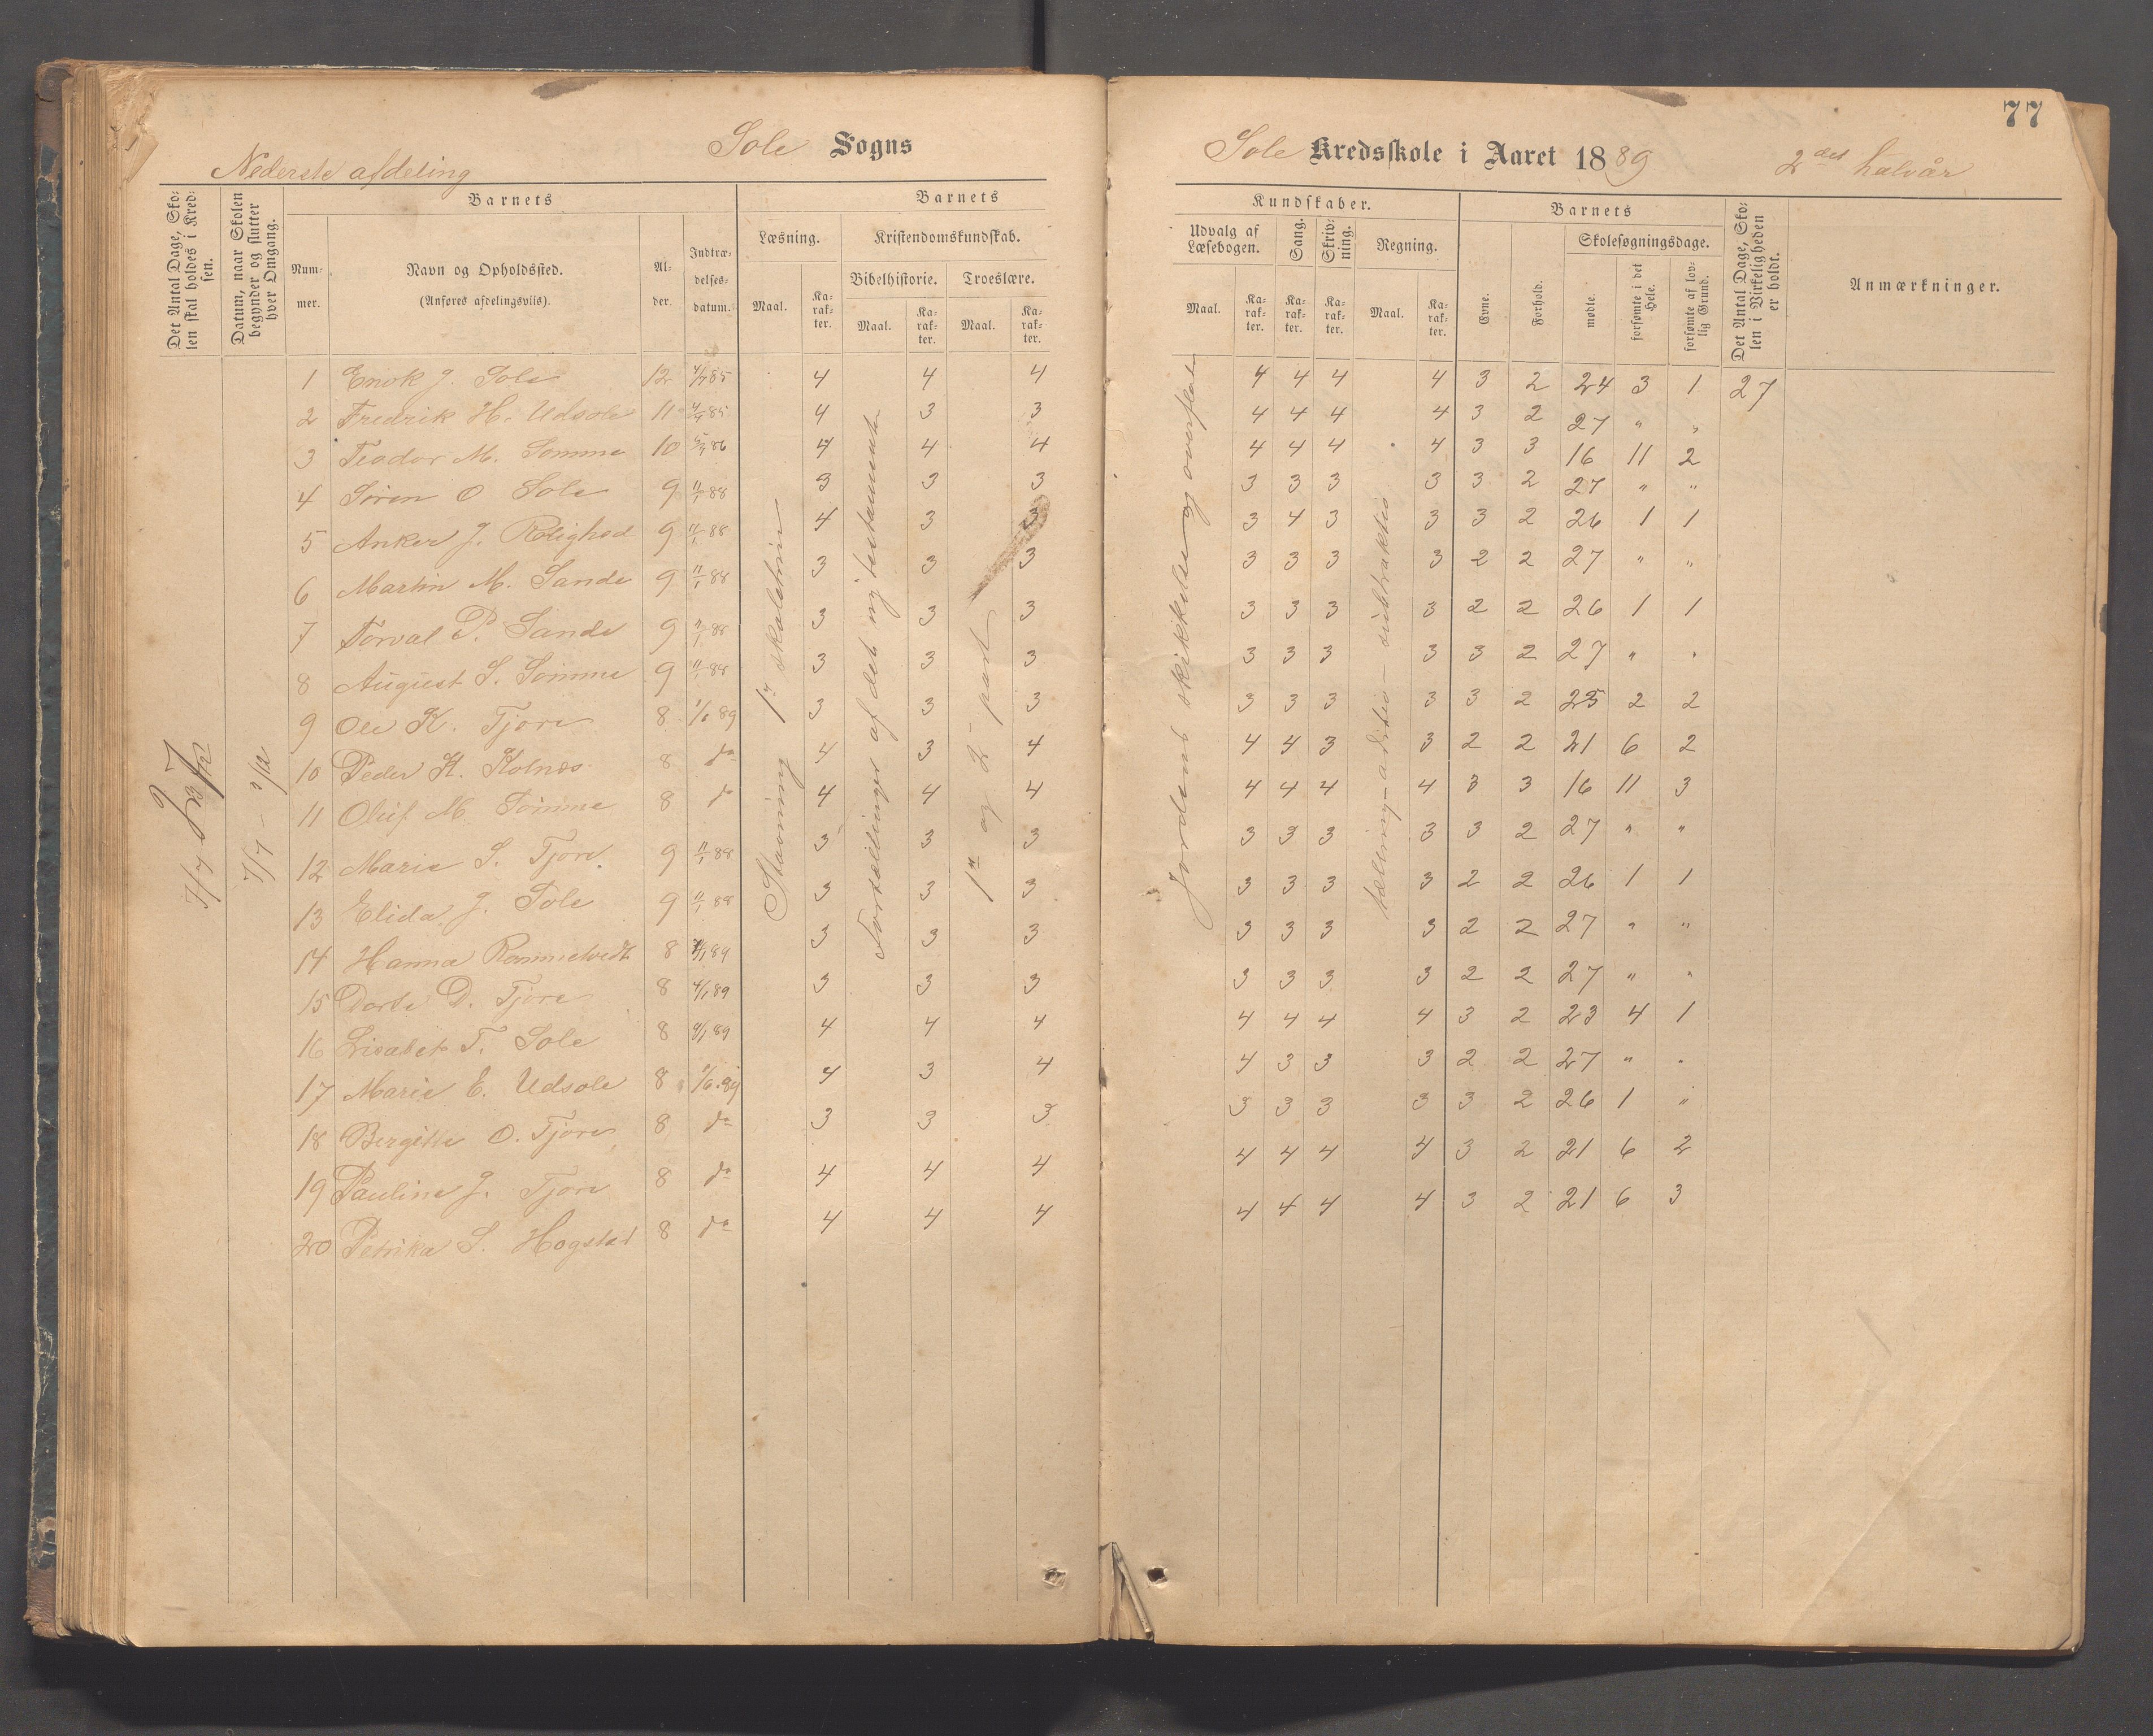 77
Sole Sogns
Sole Kredsskole i Aaret 1889 2det halvår
Nederste afdeling
Det Antal Dage, Skolen skal holdes i Kredsen.
Datum, naar Skolen begynder og slutter hver Omgang.
Barnets
Nummer.
Navn og Opholdssted.
(Anføres afdelingsviis).
Alder.
Indtrædelsesdatum.
Barnets
Læsning.
Maal.
Karakter.
Kristendomskundskab.
Bibelhistorie.
Maal.
Karakter.
Troeslære.
Maal.
Karakter.
Kundskaber.
Udvalg af Læsebogen.
Maal.
Karakter.
Sang.
Karakter.
Skrivning.
Karakter.
Regning.
Maal.
Karakter.
Barnets
Evne.
Forhold.
Skolesøgningsdage.
mødte.
forsømte i det Hele.
forsømte af lovlig Grund.
Det Antal Dage, Skolen i Virkeligheden er holdt.
Anmærkninger.
7/7 - 9/12
Stavning 1ste skoletrin
Fortællinger af det ny testamente
1ste og 2den part
Jordens skikkelse og overflade
tælling - adition - subtraktion
1 Enok J. Sole 12 85 4 4 4 4 4 4 4 3 2 24 3 1 27
2 Fredrik H. Udsole 11 85 4 3 3 4 4 4 4 3 2 27 " "
3 Teodor M. Sømme 10 86 4 4 4 4 4 4 4 3 3 16 11 2
4 Søren O Sole 9 11/1 88 3 3 3 3 3 3 3 3 2 27 " "
5 Anker J. Rolighed 9 11/1 88 4 3 3 3 4 3 3 3 2 26 1 1
6 Martin M. Sande 9 11/1 88 3 3 3 3 3 3 3 2 2 27 " "
7 Torval P. Sande 9 11/1 88 3 3 3 3 3 3 3 2 2 26 1 1
8 August S. Sømme 9 11/1 88 3 3 3 3 3 3 3 3 2 27 " "
9 Ole K. Tjore 8 89 3 3 3 3 3 3 3 3 2 25 2 2
10 Peder K. Kolnes 8 do 4 3 4 4 4 3 3 2 2 21 6 2
11 Oluf M. Sømme 8 do 4 4 4 4 4 4 4 3 3 16 11 3
12 Marie S. Tjore 9 11/1 88 3 3 3 3 3 3 3 3 2 27 " "
13 Elida J. Sole 9 11/1 88 3 3 3 3 3 3 3 2 2 26 1 1
14 Hanna Rommetvedt 8 89 3 3 3 3 3 3 3 2 2 27 " "
15 Dorte D. Tjore 8 4/1 89 3 3 3 3 3 3 3 2 2 27 " "
16 Lisabet T. Sole 8 89 4 4 4 4 4 4 4 3 2 23 4 1
17 Marie E. Udsole 8 89 4 3 4 4 3 3 3 2 2 27 " "
18 Bergitte O. Tjore 8 do 3 3 3 3 3 3 3 3 2 26 1 "
19 Pauline J. Tjore 8 do 4 4 4 4 4 4 4 3 2 21 6 2
20 Petrika S. Hogstad 8 do 4 4 4 4 4 4 4 3 2 21 6 3